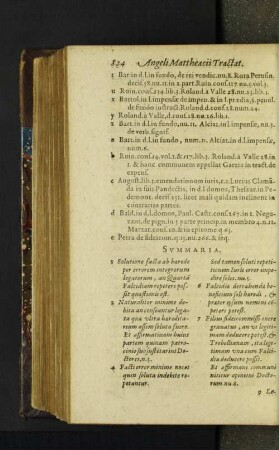 824 Angeli Matthæacii Tractat.
s Bar. in d.l. in fundo, de rei vendic. nu.8. Rota Perusin.
decis. 58. nu.11. in 2. part. Ruin. cons.117. nu.5. vol.3.
t Ruin. cons.24. lib.3. Roland. à Valle 28. nu.23. lib.1.
x Bartol. in l. impensæ de impen. & in l. prædia, §. balneo
de fundo instruct. Roland. d. cons.28. num.24.
y Roland. à Valle, d. cons.28. nu.26. lib.1.
z Bart. in d.l. in fundo, nu.11. Alciat. in l. impensæ, nu.3.
de verb. signif.
a Bart. in d.l. in fundo, num. 11. Alciat. in d.l. impensæ,
num.6.
b Ruin. cons.14. vol.1. & 117. lib.3. Roland. à Valle 28. in
1. & hanc communem appellat Garzis in tract. de
expens.
c August. lib.1. emendationum iuris, c.2. Lucius
da in suis Pandectis, in d.l. domos, Thesaur. in Pe-
demont. decis. 151. licet mali quidam inclinent in
contractus partes.
d Bald. in d.l. domos, Paul. Castr. cons.167. in 1. Negu-
zant. de pign. in 3. parte princip. in membro 4. n.11.
Marzar. cons.10. & in epitome q.63.
e Petra de fideicom. q.13. nu.266. & seq.
SVMMARIA.
1 Solutione facta ab hærede
per errorem integrorum
legatorum, an Quartâ
Falcidiam repetere pos-
sit quæstionis est.
2 Naturaliter minimè de-
bita an censeantur lega-
ta quæ vltra hæredita-
rium assem soluta fuere.
Et affirmationem huius
partem quinam patro-
cinio suo iustificarint Do-
ctores, n.3.
4 Facti error minimè nocet
quin soluta indebitè re-
petantur.
Sed tamen soluti repeti-
tionem Iuris error impe-
dire solet. nu.5.
6 Falcidia detrahenda be-
neficium ipsis hæredi, &
præter ipsum nemini cō-
petere potest.
7 Filius fideicommissi onere
grauatus, an vt legiti-
mam deducere potest, &
Trebellianam, ita legi-
timam vna cum Falci-
dia deducere possit.
Et affirmare communi-
niter opinioni Docto-
rum nu.8.
9 Le-